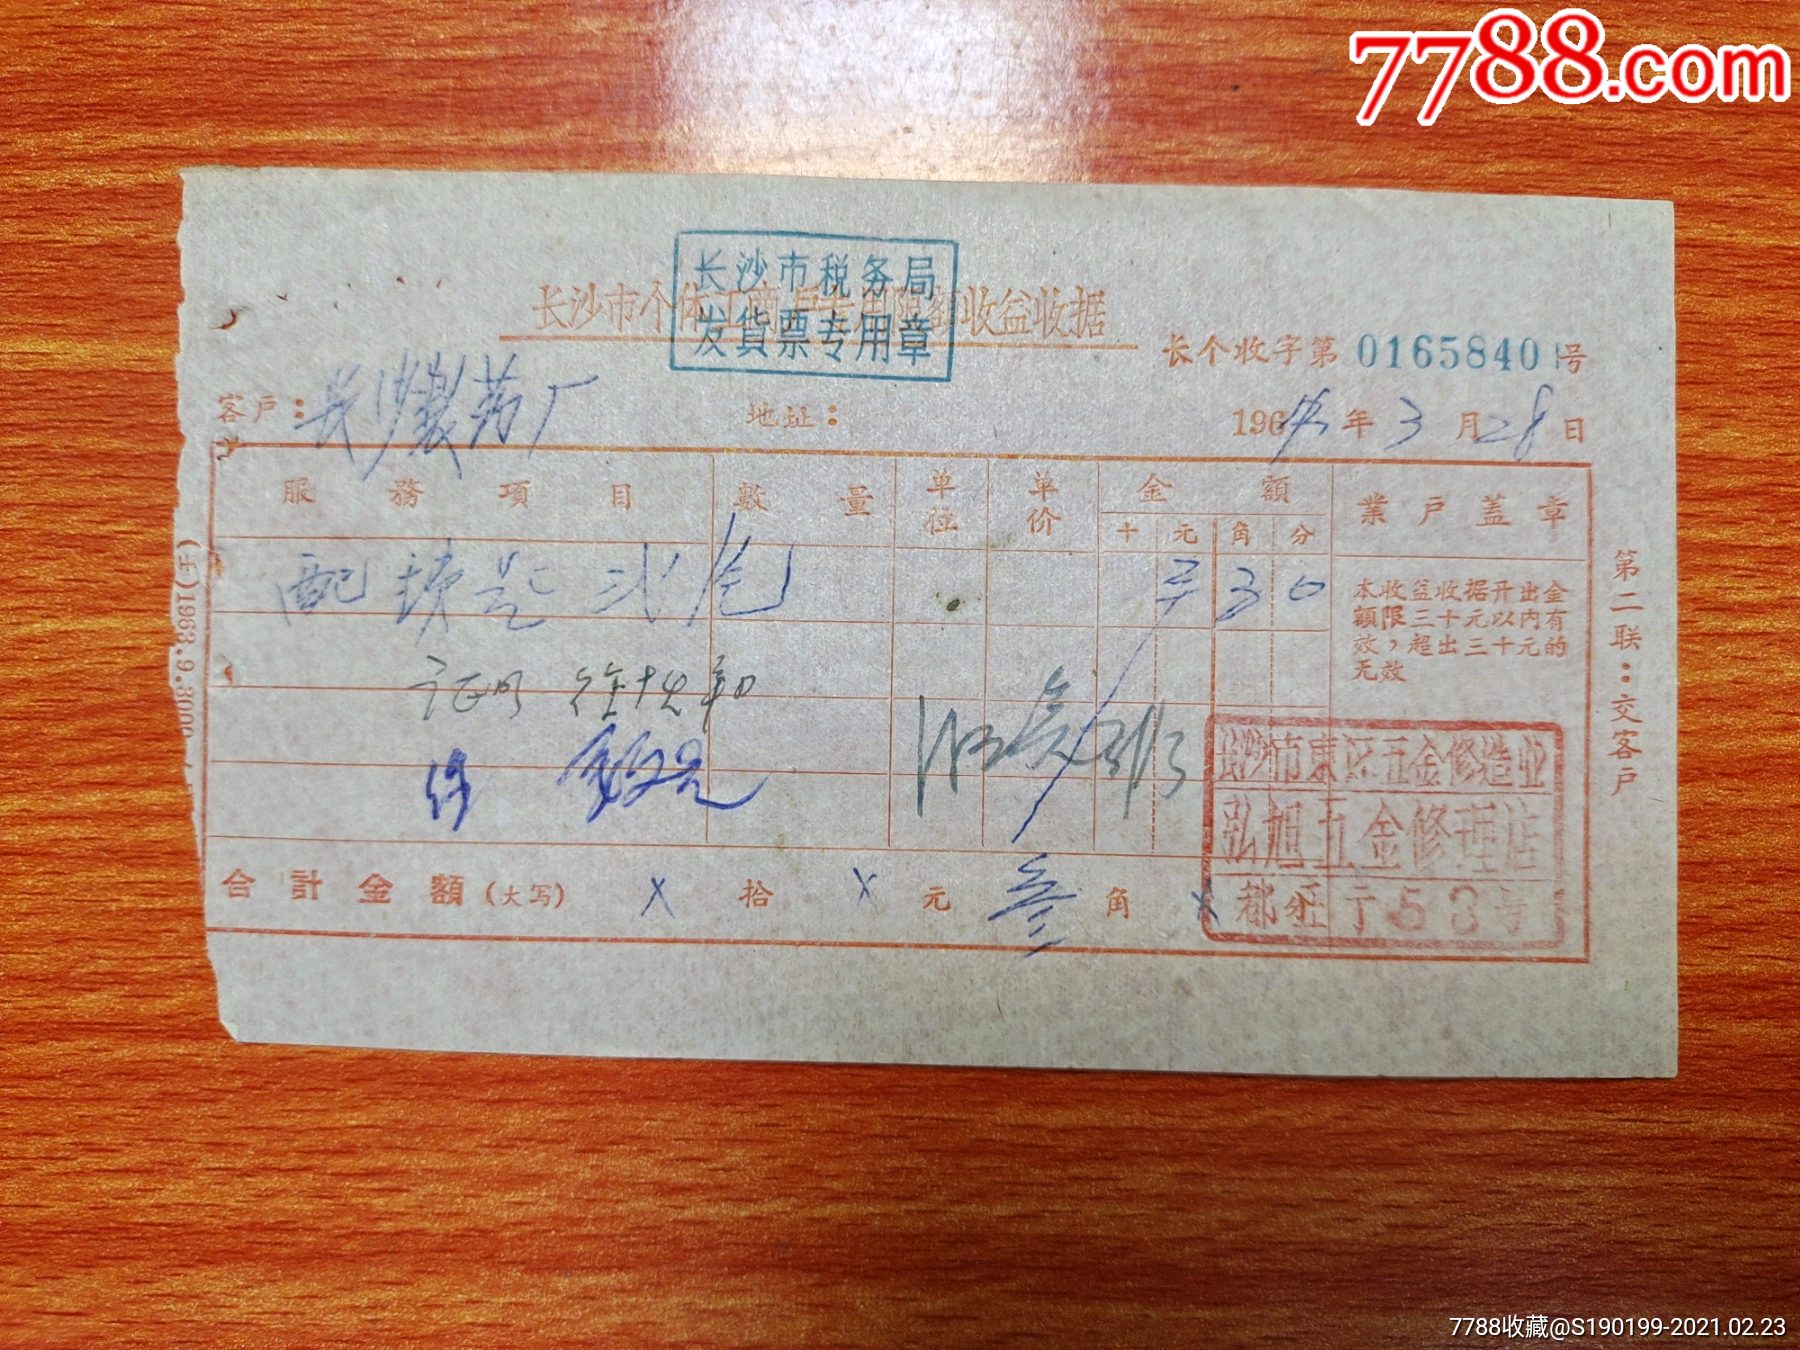 7788.com
长沙市税务局
发货票专用章
长沙市个体工商户专用限额收益收据
长个收字第 0165840 号
客户: 长沙製药厂 地址: 196 年 3 月 28 日
服務項目 數量 单位 单价 金額 業户盖章
十 元 角 分
配 匙 弍 3 0
本收益收据开出金
额限三十元以内有
效,超出三十元的
无效
证明
长沙市東区五金修造业
弘旭五金修理店
都正 53号
合計金額(大写) X 拾 X 元 叁 角 X 分
第二联:交客户
(千)1963.9.3000
7788收藏@S190199-2021.02.23